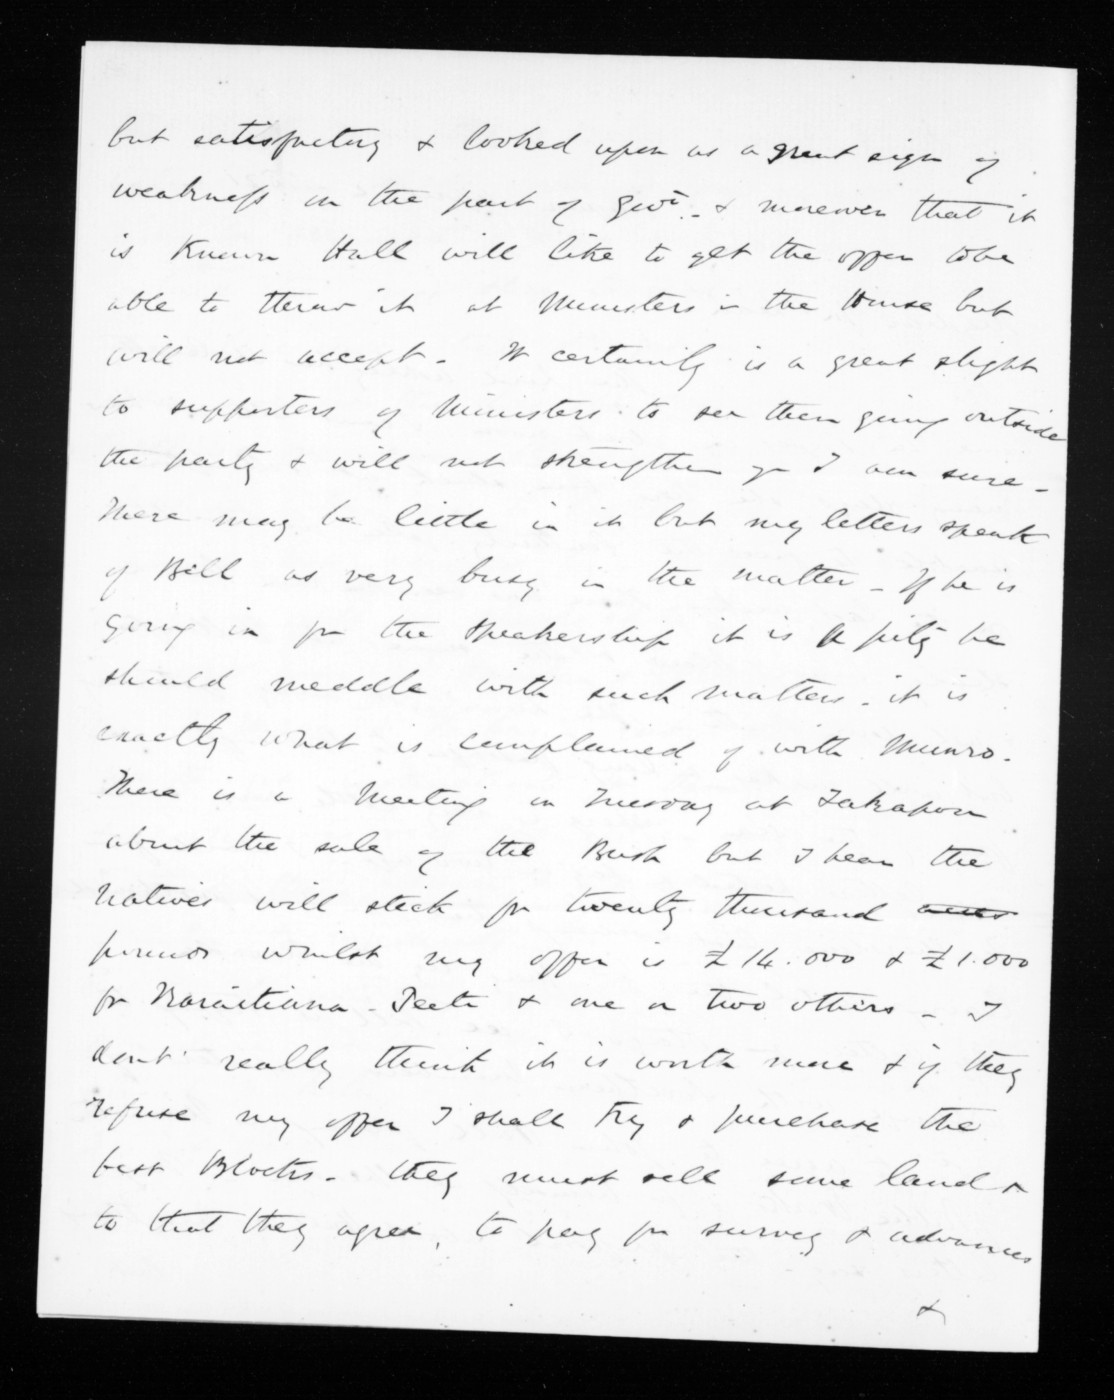 but satisfactory & looked upon as a great sign of
weakness on the part of Govt. & moreover that it
is known Hall will like to get the offer to be
able to throw it at Ministers in the House but
will not accept - It certainly is a great slight
to supporters of Ministers to see them going outside
the party & will not strengthen yr I am sure -
There may be little in it but my letters speak
of Bell as very busy in the matter - If he is
going in for the Speakership it is a pity he
should meddle with such matters - it is
exactly what is complained of with Munro.
There is a Meeting on Tuesday at Takapau
about the sale of the Bush but I hear the
Natives will stick for twenty thousand acres
pounds whilst my offer is £14.000 & £1.000
for Karaitiana - Peeti & one or two others - I
dont really think it is worth more & if they
refuse my offer I shall try & purchase the
best Blocks - they must sell some land &
to that they agree, to pay for survey & advances
&